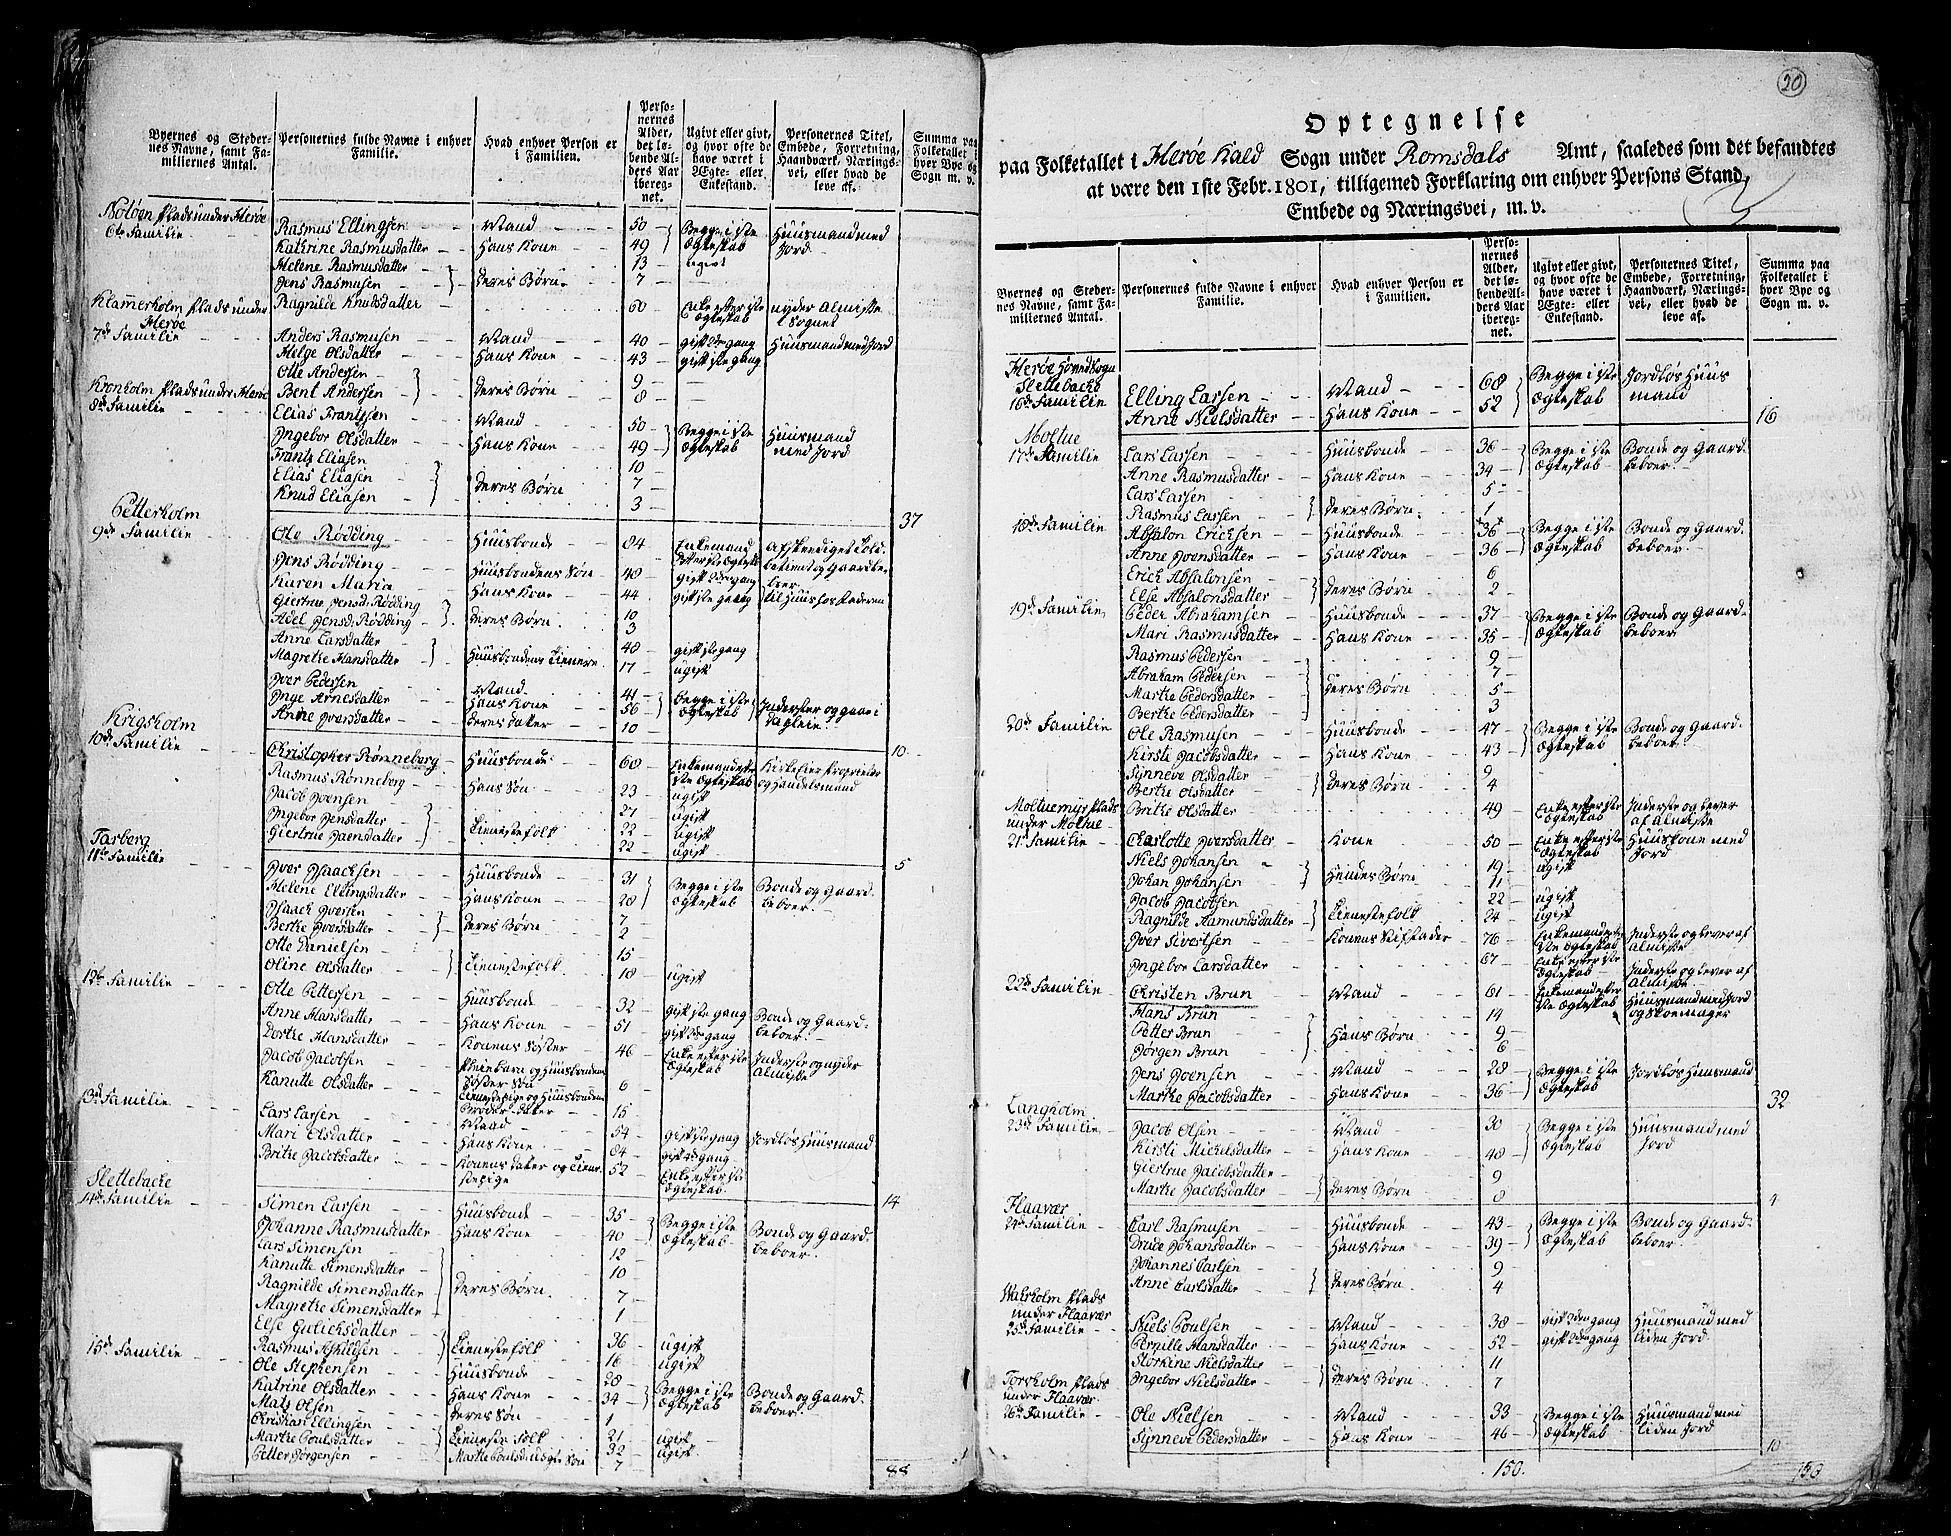 Byernes og Steder-
nes Navne, samt Fa-
miliernes Antal.
Personernes fulde Navne i enhver
Familie.
Hvad enhver Person er
i Familien.
Perso-
nernes
Alder,
det lø-
bende Al-
ders Aar
iberegnet.
Ugivt eller givt,
og hvor ofte de
have været i
Ægte- eller
Enkestand.
Personernes Titel,
Embede, Forretning,
Haandværk, Nærings-
vei, eller hvad de
leve af.
Summa paa
Folketallet i
hver Bye og
Sogn m. v.
Noløen Plads under Herøe
6te Familie Rasmus Ellingsen Mand 50 Begge i 1ste Huusmand med
Kathrine Rasmusdatter Hans Kone 49 Ægteskab Jord
Helene Rasmusdatter 13 ugivt
Jens Rasmusen Deres Børn 7
Klamerholm Plads under Ragnilde Knudsdatter 60 Enke efter 1ste nyder Almisse
Herøe Ægteskab Sognet
7de Familie Anders Rasmusen Mand 40 gift 2de gang Huusmand med Jord
Helge Olsdatter Hans Kone 43 gift 1ste gang
Otte Andersen 9
Kronholm Plads under Herøe Bent Andersen Deres Børn 8
8de Familie Elias Frantssen Mand 50 Begge i 1ste Huusmand
Ingebor Olsdatter Hans Kone 49 Ægteskab med Jord
Frants Eliasen 10
Elias Eliasen Deres Børn 7
Knud Eliasen 3
Petterholm 37
9de Familie Ole Rødding Huusbonde 84 Enkemand Afskeediget Told-
Jens Rødding Huusbondens Søn 48 gift 2den gang betient og Gaardbe-
Karen Maria Hans Kone 44 gift 1ste gang til Huus hos Faderen
Giertrue Jensd: Rødding Deres Børn 10
Adel Jensd: Rødding 3
Anne Larsdatter 48 gift 1ste gang
Magrethe Hansdatter Huusbondens Tienere 17 ugift
Iver Pedersen Mand 41 Begge i 1ste
Inge Arnesdatter Hans Kone 56 Ægteskab
Anne Iversdatter Deres Dater 10
Krigsholm 10
10de Familie Christopher Rønneberg Huusbonde 68 Enkemand efter Kirkeeier Proprietær
Rasmus Rønneberg Hans Søn 23 ugift og Handelsmand
Jacob Joensen 27 ugift
Ingebor Jensdatter Tienestefolk 22 ugift
Giertrue Jaensdatter 22 ugift
Tarberg 5
11te Familie Iver Isaachsen Huusbonde 31 Begge i 1ste Bonde og Gaard-
Helene Ellingsdatter Hans Kone 28 Ægteskab beboer
Isaach Iversen 7
Berthe Iversdatter Deres Børn 2
Otte Danielsen 15
Oline Olsdatter Tienestefolk 18 ugift
12te Familie Otte Pettersen Huusbonde 32 gift 1ste gang Bonde og Gaard-
Anne Hansdatter Hans Kone 51 gift 2den gang beboer
Dorthe Hansdatter Konens Søster 46 Enke efter 1ste Inderste og nyder
Ægteskab Almisse
Jacob Jacobsen Pleiebarn og Huusbondens
Søster Søn 6
Kanutte Olsdatter Tienestepige og Huusbondens
Broder Dater 15
13de Familie Lars Larsen Mand 54 gift 1ste gang Jordløs Huusmand
Mari Olsdatter Hans Kone 84 gift 2de gang
Brithe Jacobsdatter Konens Dater og Tiene- 52 Enke efter 1ste
stepige Ægteskab
Slettebache 14
14de Familie Simen Larsen Huusbonde 35 Begge i 1ste Bonde og Gaard-
Johanne Rasmusdatter Hans Kone 40 Ægteskab beboer
Lars Simensen 12
Kanutte Simensdatter 10
Ragnilde Simensdatter Deres Børn 7
Magrethe Simensdatter 1
Else Gulichsdatter 36 ugift
Rasmus Tienestefolk 16 ugift
15de Familie Ole Stephensen Huusbonde 28 Begge i 1ste Bonde og Gaard-
Katrine Olsdatter Hans Kone 34 Ægteskab beboer
Mats Olsen Deres Søn 1
Christian Ellingsen 21 ugift
Marthe Poulsdatter Tieneste folk 32 ugift
Petter Jørgensen Marthe Poulsdatters Søn 7
88
20
Optegnelse
paa Folketallet i Herøe Kald Sogn under Romsdals Amt, saaledes som det befandtes
at være den 1ste Febr. 1801, tilligemed Forklaring om enhver Persons Stand,
Embede og Næringsvei, m. v.
Byernes og Steder-
nes Navne, samt Fa-
miliernes Antal.
Personernes fulde Navne i enhver
Familie.
Hvad enhver Person er
i Familien.
Perso-
nernes
Alder,
det lø-
bende Al-
ders Aar
iberegnet.
Ugivt eller givt,
og hvor ofte de
have været i
Ægte- eller
Enkestand.
Personernes Titel,
Embede, Forretning,
Haandværk, Nærings-
vei, eller hvad de
leve af.
Summa paa
Folketallet i
hver Bye og
Sogn m. v.
Herøe Hovedsogn
Slettebache
16de Familie Elling Larsen Mand 68 Begge i 1ste Jordløs Huus
Anne Nielsdatter Hans Kone 52 Ægteskab mand 16
Moltue
17de Familie Lars Larsen Huusbonde 36 Begge i 1ste Bonde og Gaard-
Anne Rasmusdatter Hans Kone 34 Ægteskab beboer
Lars Larsen 5
Rasmus Larsen Deres Børn 1
18de Familie Absalon Ericksen Huusbonde 36 Begge i 1ste Bonde og Gaard-
Anne Joensdatter Hans Kone 36 Ægteskab beboer
Erich Absalonsen 6
Else Absalonsdatter Deres Børn 2
19de Familie Peder Abrahamsen Huusbonde 37 Begge i 1ste Bonde og Gaard-
Mari Rasmusdatter Hans Kone 35 Ægteskab beboer
Rasmus Pedersen 9
Abraham Pedersen 7
Marthe Pedersdatter Deres Børn 5
Berthe Pedersdatter 3
20de Familie Ole Rasmusen Huusbonde 47 Begge i 1ste Bonde og Gaard-
Kirsti Jacobsdatter Hans Kone 43 Ægteskab beboer
Synneve Olsdatter 9
Berthe Olsdatter Deres Børn 4
Moltuemyr Plads Brithe Olsdatter 49 Enke efter 1ste Inderste og lever
under Moltue Ægteskab af Almisse
21de Familie Charlotte Iversdatter Kone 50 Enke efter 1ste Huuskone med
Ægteskab Jord
Niels Johansen 19 ugift
Johan Johansen Hendes Børn 11
Jacob Jacobsen 22 ugift
Ragnilde Aamundsdatter Tienestefolk 24 ugift
Iver Sivertsen Konens Stiffader 76 Enkemand efter Inderste og lever af
1ste Ægteskab Almisse
Ingebor Larsdatter 67 Enke efter 1ste Inderste og lever af
Ægteskab Almisse
22de Familie Christen Brun Mand 61 Enkemand efter Huusmand med Jord
Hans Brun 14 1ste Ægteskab og Skoemager
Petter Brun Hans Børn 9
Jørgen Brun 6
Jens Joensen Mand 28 Begge i 1ste Jordløs Huusmand
Marthe Jacobsdatter Hans Kone 36 Ægteskab
Langholm 32
23de Familie Jacob Olsen Mand 30 Begge i 1ste Huusmand med
Kirsti Michelsdatter Hans Kone 48 Ægteskab Jord
Giertrue Jacobsdatter 9
Marthe Jacobsdatter Deres Børn 8
Flaavær 4
24de Familie Carl Rasmusen Huusbonde 43 Begge i 1ste Bonde og Gaard-
Drude Johansdatter Hans Kone 39 Ægteskab beboer
Johannes Carlsen 9
Anne Carlsdatter Deres Børn 4
Walsholm Plads
under Flaavær
25de Familie Niels Poulsen Mand 38 gift 2den gang Huusmand med
Pernille Hansdatter Hans Kone 52 gift 2den gang liden Jord
Storkine Nielsdatter 11
Torsholm Plads Ingebor Nielsdatter Deres Børn 7
under Flaavær
26de Familie Ole Nielsen Mand 33 Begge i 1ste Huusmand med
Synneve Pedersdatter Hans Kone 46 Ægteskab liden Jord
10
150.
150